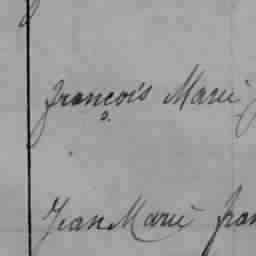 françois Marie
Jean Marie fran